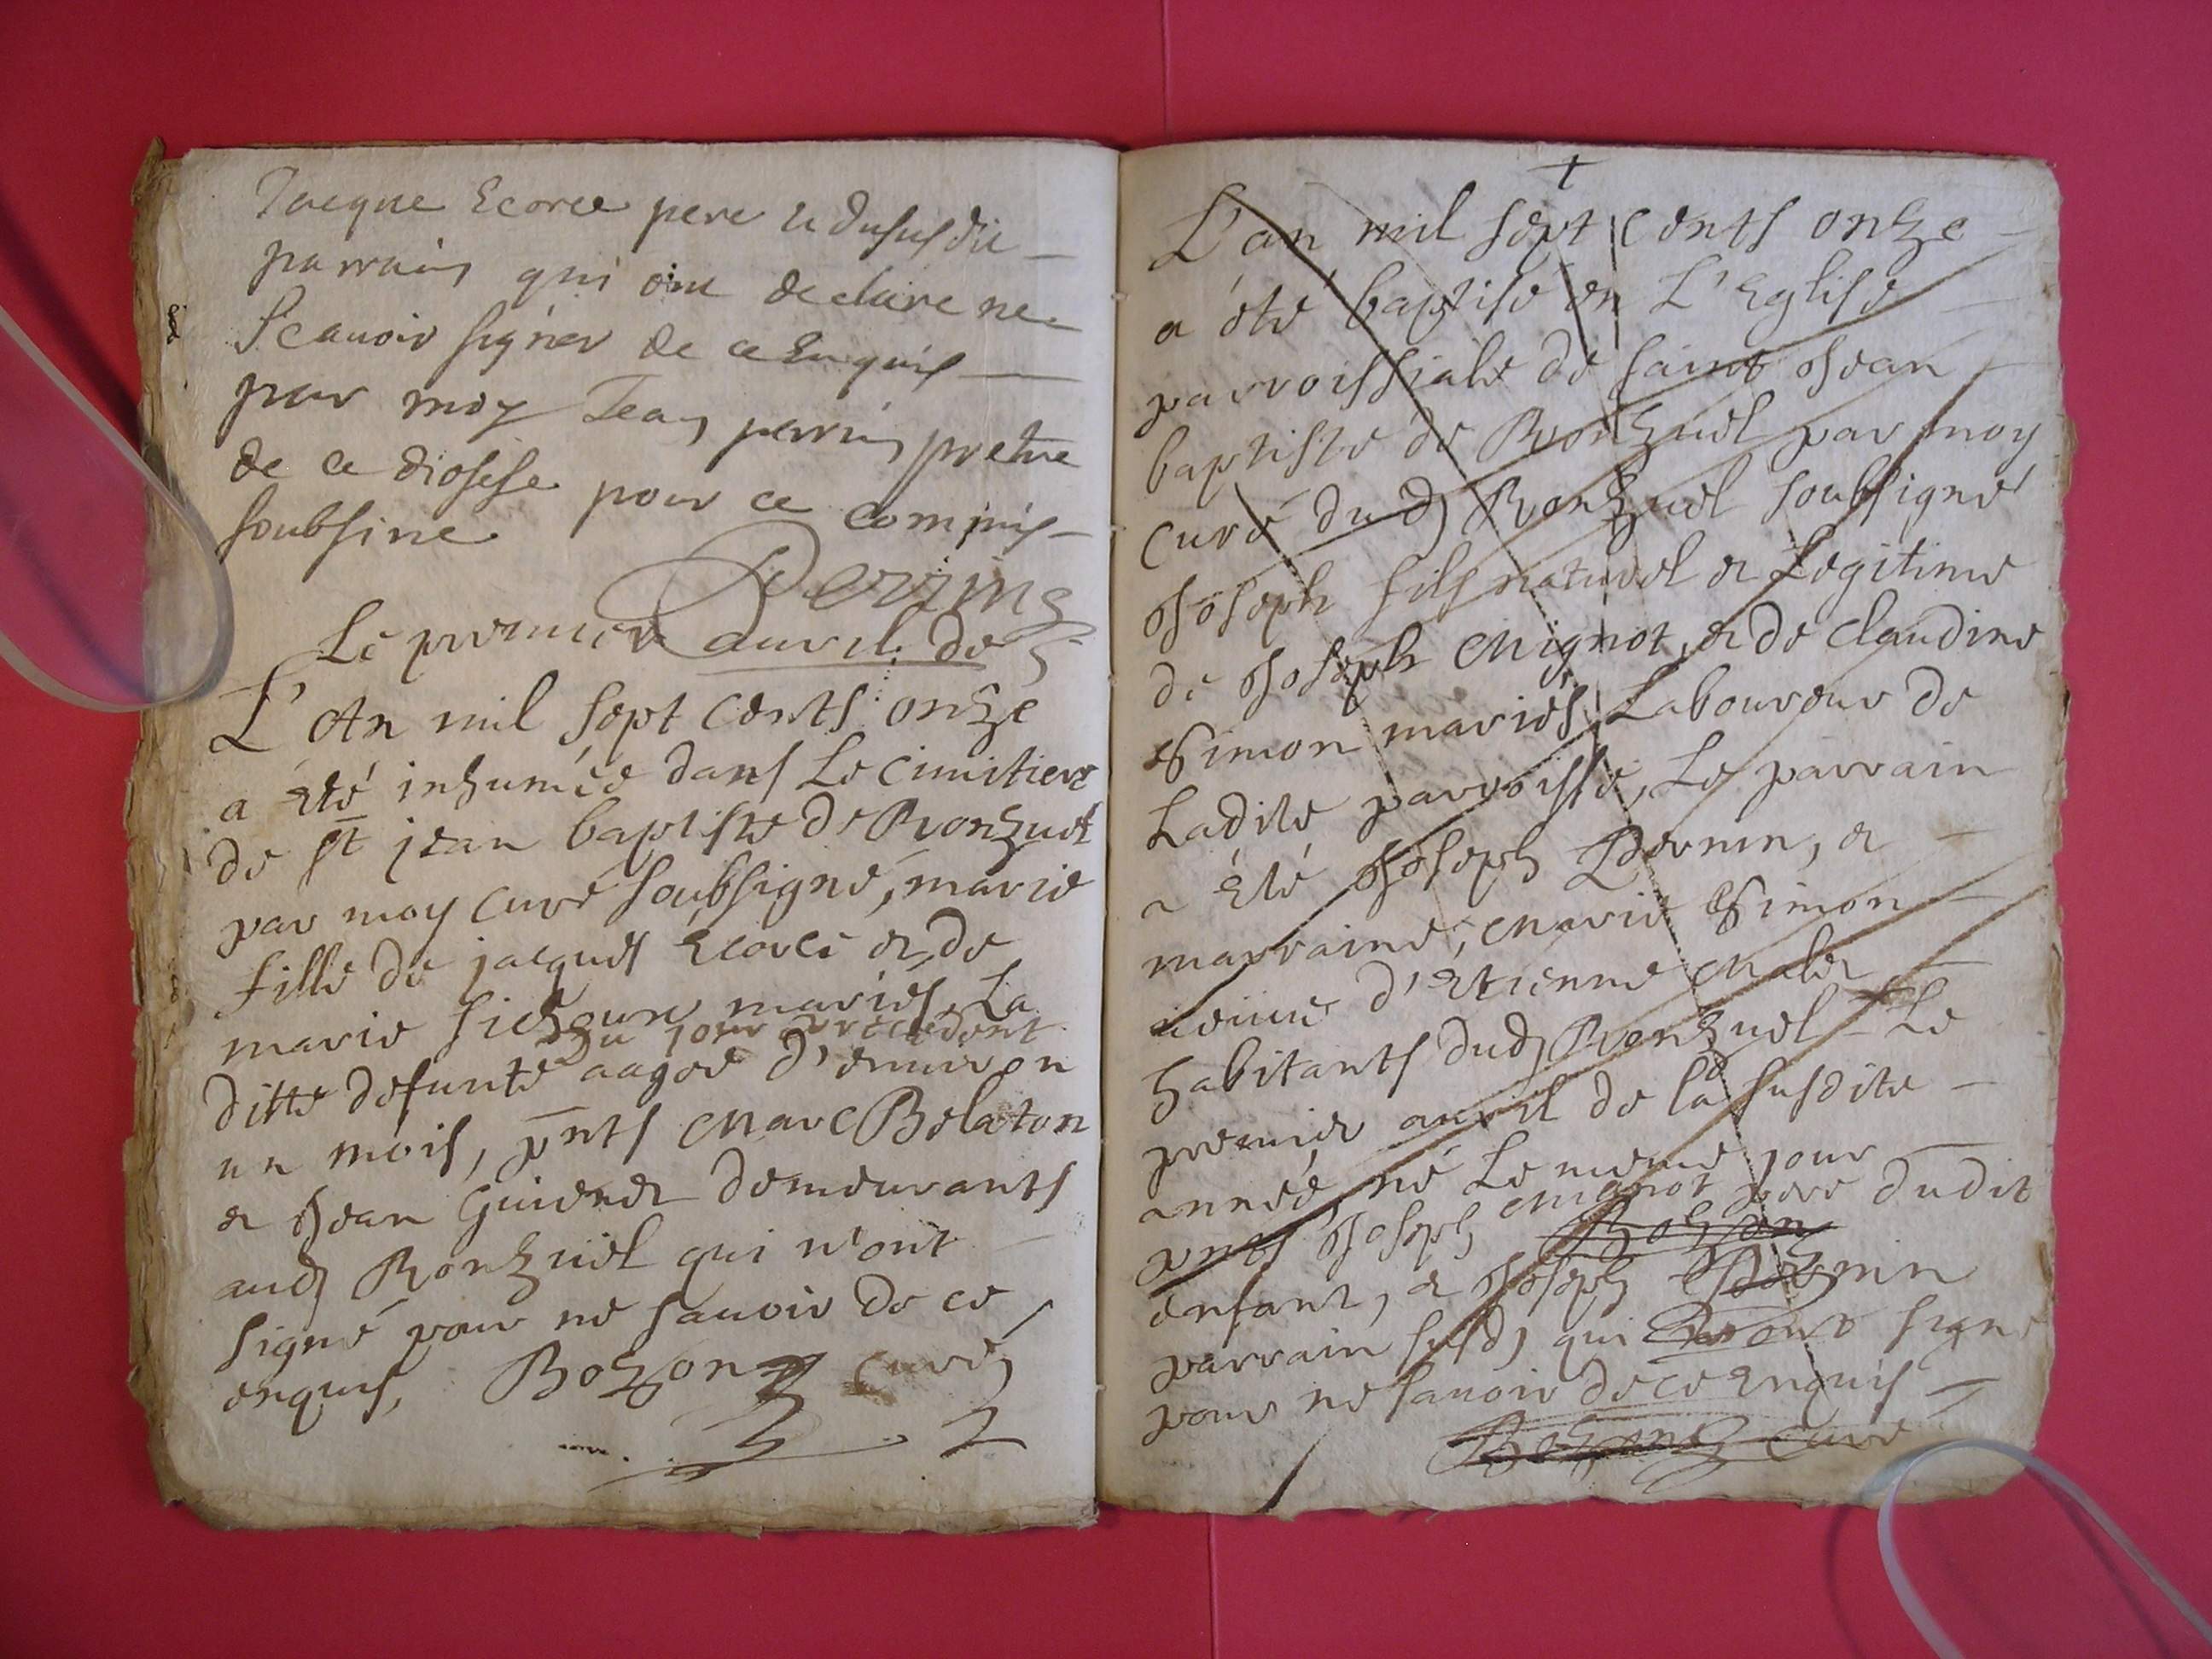 Jacque Ecorce pere et dususdit
parrain qui ont declare ne
scauoir signer de ce enquis
par moy Jean perrin pretre
de ce diosese pour ce commis
soubsine
Perrin
Le premier auril de
L'An mil sept cents onze
a été inhumée dans Le cimitiere
de st jean baptiste de Rronzuel
par moy curé soubsigné, marie
fille de jacques Ecorce et de
marie mariés, La
du jour precedent
ditte defunte aagée d'enuiron
un mois, pnts Marc Belaton
et Jean Guienet demeurants
aud Ronzuel qui n'ont
signé pour ne sauoir de ce
enquis, Bozon curé
+
L'an mil sept cents onze
a été baptisé en L'Eglise
parroissiale de saint Jean
baptiste de Rronzuel par moy
curé dud Ronzuel soubsigné
Joseph fils naturel et Legitime
de Joseph Mignot, et de Claudine
Simon mariés Laboureur de
Ladite parroisse, Le parrain
a été Joseph Pernin, et
marraine, Marie Simon
ueuue d'Etienne
habitants dud Ronzuel Le
premier auril de la susdite
année, né Le meme jour
pnts Joseph Mignot pere dudit
Bozon
enfant, et Joseph
parrain susd, qui n'ont signé
pour ne sauoir de ce enquis
Bozon curé